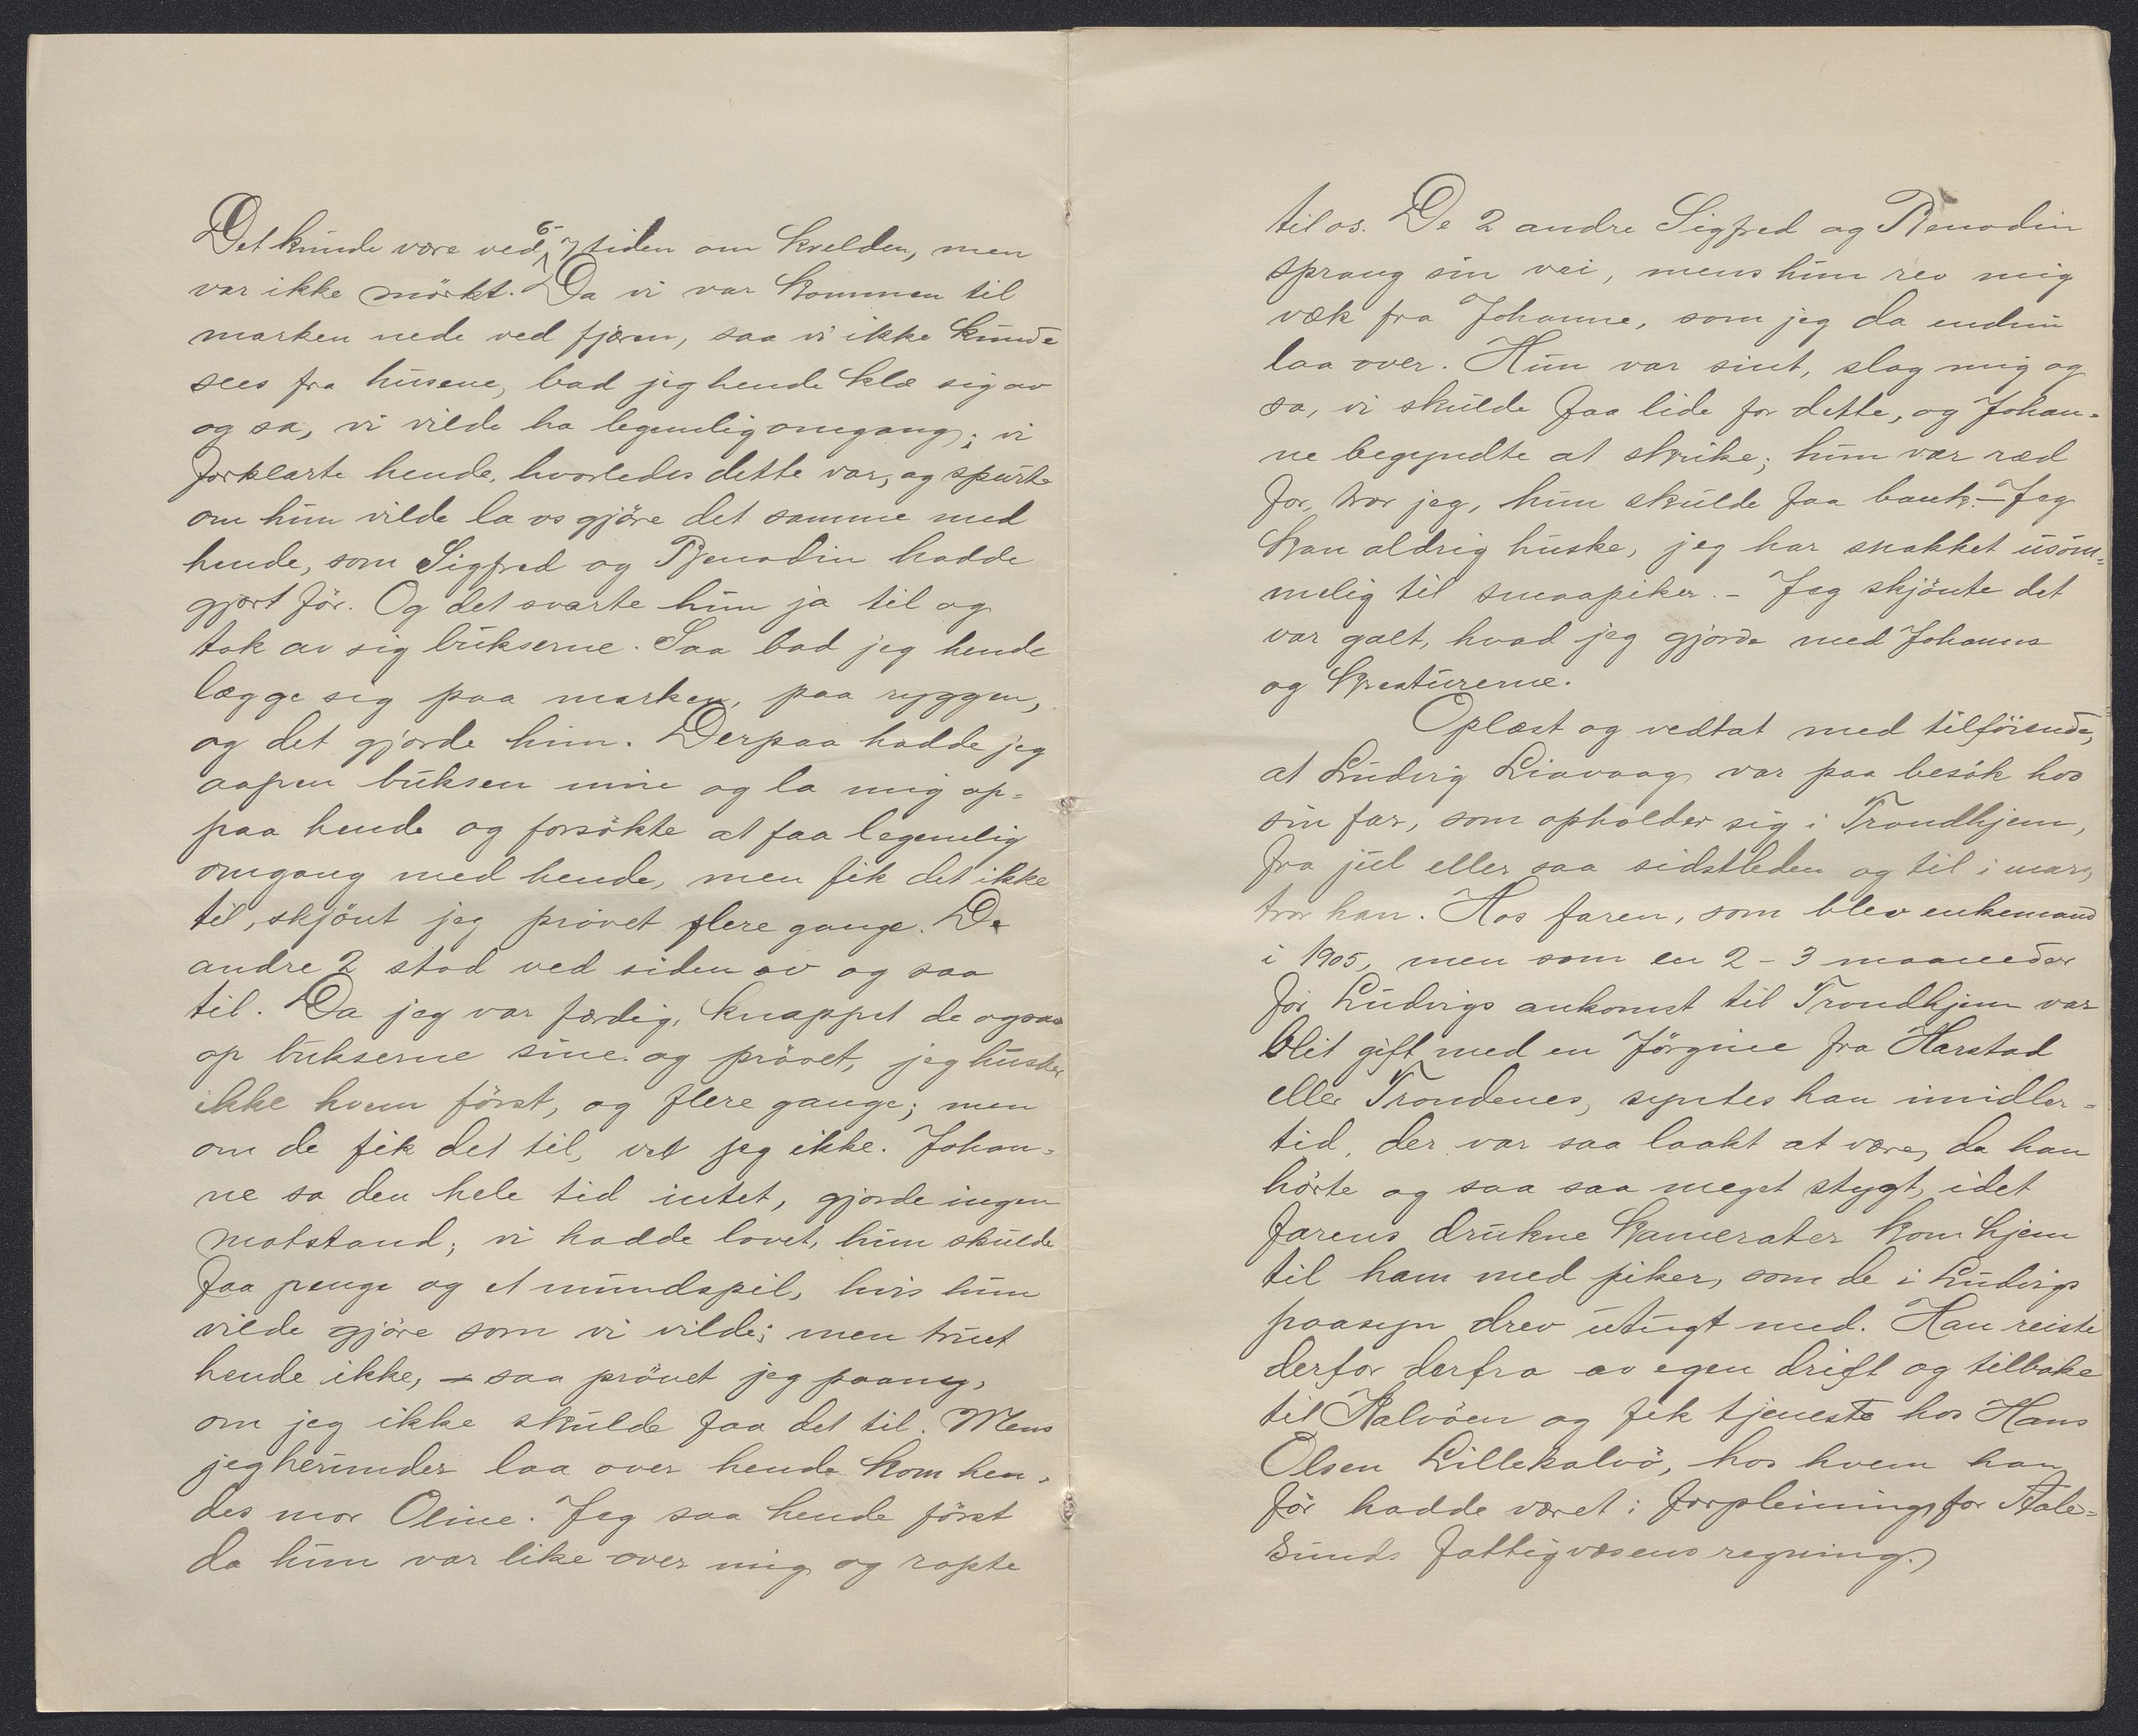 Det kunde være ved 6-7 tiden om kvelden, men
var ikke mörkt. Da vi var kommen til
marken nede ved fjæren, saa vi ikke kunde
sees fra husene, bad jeg hende klæ sig av
og sa, vi vilde ha legemlig omgang; vi
forklarte hende, hvorledes dette var, og spurte
om hun vilde la os gjöre det samme med
hende, som Sigfred og hadde
gjort för. Og det svarte hun ja til og
tok av sig bukserne. Saa bad jeg hende
lægge sig paa marken, paa ryggen,
og det gjorde hun. Derpaa hadde jeg
aapen buksen min og la mig op-
paa hende og forsökte at faa legemlig
omgang med hende, men fik det ikke
til, skjönt jeg prövet flere gange. De
andre 2 stod ved siden av og saa
til. Da jeg var færdig, knappet de ogsaa
op bukserne sine og prövet, jeg husker
ikke hvem först, og flere gange; men
om de fik det til, vet jeg ikke. Johan-
ne sa den hele tid intet, gjorde ingen
motstand; vi hadde lovet, hun skulde
faa penge og et mundspil, hvis hun
vilde gjöre som vi vilde; men truet
hende ikke, – saa prövet jeg paany,
om jeg ikke skulde faa det til. Mens
jeg herunder laa over hende kom hen-
des mor Oline. Jeg saa hende först
da hun var like over mig og ropte
til os. De 2 andre Sigfred og
sprang sin vei, mens hun rev mig
væk fra Johanne, som jeg da endnu
laa over. Hun var sint, slog mig og
sa, vi skulde faa lide for dette, og Johan-
ne begyndte at skrike; hun var ræd
for, tror jeg, hun skulde faa bank. – Jeg
kan aldrig huske, jeg har snakket usöm-
melig til smaapiker. – Jeg skjönte det
var galt, hvad jeg gjorde med Johanne
og kreaturerne.
Oplæst og vedtat med tilföiende,
at Ludvig Liavaag var paa besök hos
sin far, som opholder sig i Trondhjem,
fra jul eller saa sidstleden og til i mars,
tror han. Hos faren, som blev enkemand
i 1905, men som en 2-3 maaneder
för Ludvigs ankomst til Trondhjem var
blit gift med en Jörgine fra Harstad
eller Trondenes, syntes han imidler-
tid, der var saa laakt at være, da han
hörte og saa saa meget stygt, idet
farens drukne kamerater kom hjem
til ham med piker, som de i Ludvigs
paasyn drev utugt med. Han reiste
derfor derfra av egen drift og tilbake
til Kalvöen og fik tjeneste hos Hans
Olsen Lillekalvö, hos hvem han
för hadde været i forpleining for Aale-
sunds fattigvæsens regning.